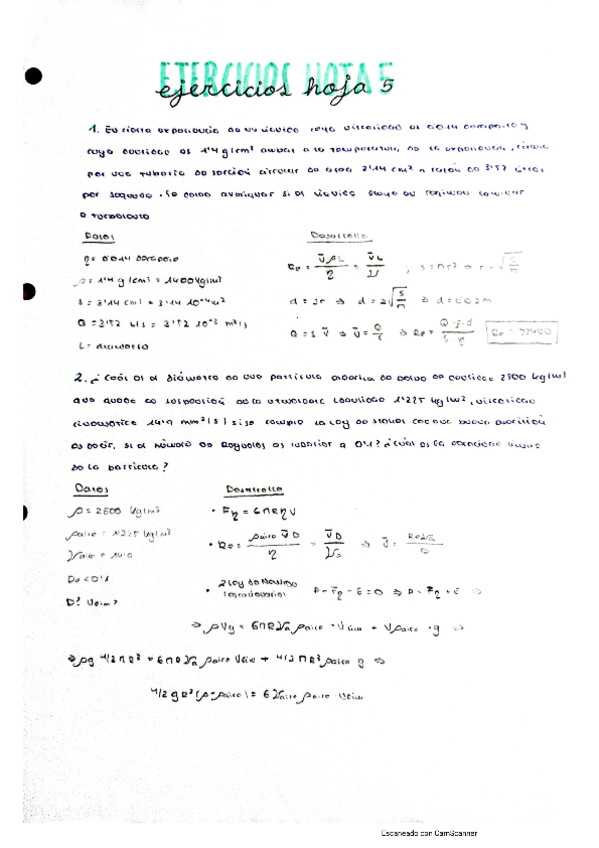 EJERCICIOS HOJA 5
ejercicios hoja 5
1. En cierta experiencia de un líquido cuya viscosidad es 0.014 decapoise y
cuya densidad es 1'4 g/cm³ a la temperatura de la experiencia, circula
por una tubería de sección circular de área 3'14 cm² a razón de 3'52 litros
por segundo. Se desea averiguar si el líquido sigue un régimen laminar
o turbulento
Datos Desarrollo
η = 0'014 decapoise
ρ = 1'4 g/cm³ = 1400 kg/m³
S = 3'14 cm² = 3'14 10⁻⁴ m²
Q = 3'52 l/s = 3'52 10⁻³ m³/s
L = diámetro
d = 2r ⇒ d = 2√S/π ⇒ d = 0'02m
Q = S v̄ ⇒ v̄ = Q/S ⇒ Re = Q·ρ·d / S·η
2. ¿Cuál es el diámetro de una partícula esférica de polvo de densidad 2500 kg/m³
que queda en suspensión en la atmósfera (densidad 1'225 kg/m³, viscosidad
cinemática 14'9 mm²/s) si se cumple la ley de Stokes
es decir, si el número de Reynolds es inferior a 0'1? ¿Cuál es la velocidad límite
de la partícula?
Datos Desarrollo
ρ = 2500 kg/m³
ρaire = 1'225 kg/m³
νaire = 14'9
Re < 0'1
D? vlim?
• Fη = 6πRηv
• Re = ρaire v̄D / η = v̄D / νa ⇒ v̄ = Reνa / D
• 2 Ley de Newton P - Fη - E = 0 ⇒ P = Fη + E ⇒
⇒ ρVg = 6πRνa ρaire · vlim + Vρaire · g ⇒
⇒ ρg 4/3 πR³ = 6πRνa ρaire vlim + 4/3 πR³ ρaire g ⇒
4/3 gR²(ρ-ρaire) = 6 νaire ρaire vlim
Escaneado con CamScanner